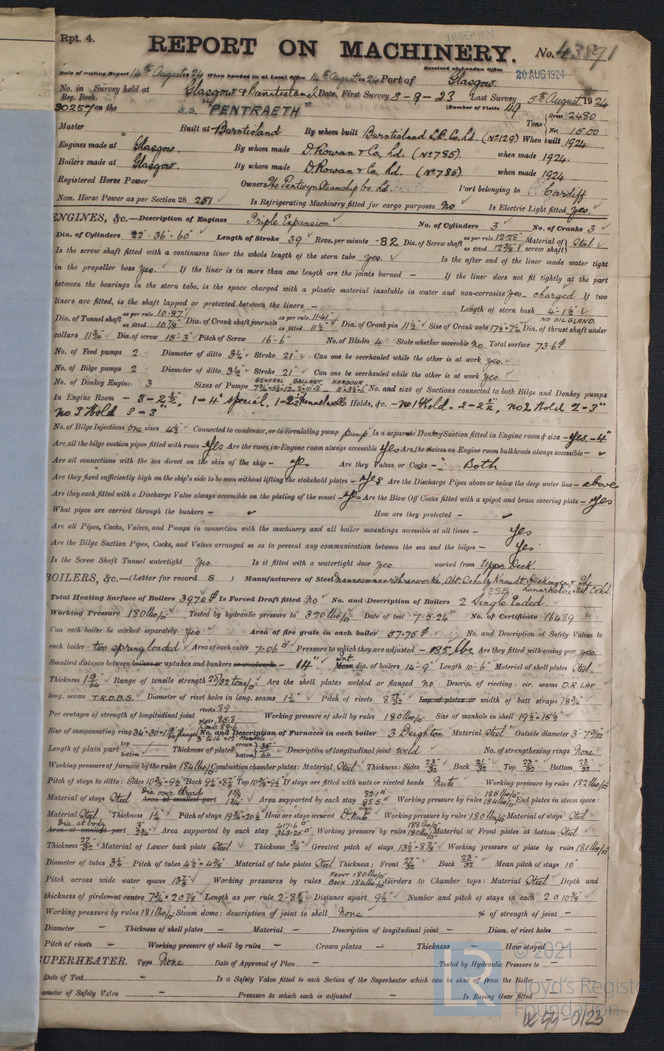 Rpt. 4.
10 SEP 1924
REPORT ON MACHINERY.
No. 43871
Received at London Office
20 AUG 1924
Date of writing Report 14th August 1924 When handed in at Local Office 14th August 1924 Port of Glasgow.
No. in Survey held at Glasgow & Burntisland Date, First Survey 3-9-23 Last Survey 5th August 1924
Reg. Book.
30257 on the S.S. "PENTRAETH" (Number of Visits 49)
Tons Gross 2480 Net 1500
Master Built at Burntisland By whom built Burntisland S.B. Co. Ld. (No 129) When built 1924
Engines made at Glasgow. By whom made D. Rowan & Co, Ld. (No 785) when made 1924.
Boilers made at Glasgow. By whom made D. Rowan & Co, Ld. (No 785) when made 1924
Registered Horse Power Owners The Pentwyn Steamship Co. Ld. Port belonging to Cardiff
Nom. Horse Power as per Section 28 251 Is Refrigerating Machinery fitted for cargo purposes No Is Electric Light fitted Yes.
ENGINES, &c.—Description of Engines Triple Expansion No. of Cylinders 3 No. of Cranks 3
Dia. of Cylinders 22"-36"-60" Length of Stroke 39" Revs. per minute - 82 Dia. of Screw shaft as per rule 12.58" as fitted 12¾" Material of screw shaft Steel
Is the screw shaft fitted with a continuous liner the whole length of the stern tube yes. Is the after end of the liner made water tight
in the propeller boss yes. If the liner is in more than one length are the joints burned – If the liner does not fit tightly at the part
between the bearings in the stern tube, is the space charged with a plastic material insoluble in water and non-corrosive yes - charged If two
liners are fitted, is the shaft lapped or protected between the liners – Length of stern bush 4'-1½"
NO OILGLAND.
Dia. of Tunnel shaft as per rule 10.87" as fitted 10⅞" Dia. of Crank shaft journals as per rule 11.41" as fitted 11½" Dia. of Crank pin 11½" Size of Crank webs 17½"-7½" Dia. of thrust shaft under
collars 11¾" Dia. of screw 15'-3" Pitch of Screw 16'-6" No. of Blades 4 State whether moveable No Total surface 73.6 ft
No. of Feed pumps 2 Diameter of ditto 3½" Stroke 21" Can one be overhauled while the other is at work yes.
No. of Bilge pumps 2 Diameter of ditto 3½" Stroke 21" Can one be overhauled while the other is at work yes.
No. of Donkey Engines 3 Sizes of Pumps GENERAL BALLAST HARBOUR No. and size of Suctions connected to both Bilge and Donkey pumps
In Engine Room - 3-2½", 1-4" special, 1-2½" tunnel well Holds, &c. - no 1 Hold - 2-2½", no 2 Hold 2-3"
no 3 Hold 3-3"
No. of Bilge Injections one sizes 4½" Connected to condenser, or to circulating pump pump Is a separate Donkey Suction fitted in Engine room & size - yes - 4"
Are all the bilge suction pipes fitted with roses yes Are the roses in Engine room always accessible yes Are the sluices on Engine room bulkheads always accessible –
Are all connections with the sea direct on the skin of the ship - yes Are they Valves or Cocks - Both
Are they fixed sufficiently high on the ship's side to be seen without lifting the stokehold plates - yes Are the Discharge Pipes above or below the deep water line - above
Are they each fitted with a Discharge Valve always accessible on the plating of the vessel yes Are the Blow Off Cocks fitted with a spigot and brass covering plate - yes
What pipes are carried through the bunkers – How are they protected –
Are all Pipes, Cocks, Valves, and Pumps in connection with the machinery and all boiler mountings accessible at all times - yes
Are the Bilge Suction Pipes, Cocks, and Valves arranged so as to prevent any communication between the sea and the bilges - yes
Is the Screw Shaft Tunnel watertight Yes. Is it fitted with a watertight door yes worked from Upper Deck
BOILERS, &c.—(Letter for record S) Manufacturers of Steel
Total Heating Surface of Boilers 3970 ft Is Forced Draft fitted No No. and Description of Boilers 2 Single Ended
Working Pressure 180 lbs/☐" Tested by hydraulic pressure to 320 lbs/☐" Date of test 7-5-24 No. of Certificate 16489
Can each boiler be worked separately Yes Area of fire grate in each boiler 57.75 ft No. and Description of Safety Valves to
each boiler two spring loaded Area of each valve 7.06 ☐" Pressure to which they are adjusted - 185 lbs Are they fitted with easing gear yes
Smallest distance between boilers or uptakes and bunkers or woodwork - 14" Int. Mean dia. of boilers 14'-9" Length 10'-6" Material of shell plates Steel
Thickness Range of tensile strength Are the shell plates welded or flanged No Descrip. of riveting: cir. seams D.R. LAP
long. seams T.R.D.B.S. Diameter of rivet holes in long. seams 1¼" Pitch of rivets Lap of plates or width of butt straps 18¾"
Per centages of strength of longitudinal joint rivets 89 plate 85.8 Working pressure of shell by rules 180 lbs/☐" Size of manhole in shell 19½"×15½"
Size of compensating ring No. and Description of Furnaces in each boiler 3 Deighton Material Steel Outside diameter
Length of plain part top bottom Thickness of plates crown bottom Description of longitudinal joint weld No. of strengthening rings None
Working pressure of furnace by the rules 184 lbs/☐" Combustion chamber plates: Material Steel Thickness: Sides 23/32" Back 21/32" Top 23/32" Bottom 23/32"
Pitch of stays to ditto: Sides Back Top If stays are fitted with nuts or riveted heads Nuts Working pressure by rules 182 lbs/☐"
Material of stays Steel Dia over threads Area at smallest part Area supported by each stay Working pressure by rules End plates in steam space:
Material Steel Thickness Pitch of stays How are stays secured D. Nuts Working pressure by rules 180 lbs/☐" Material of stays Steel
Dia at body Area at smallest part Area supported by each stay Working pressure by rules Material of Front plates at bottom Steel
Thickness Material of Lower back plate Steel Thickness Greatest pitch of stays Working pressure of plate by rules 181 lbs/☐"
Diameter of tubes 3¼" Pitch of tubes 4½"×4⅜" Material of tube plates Steel Thickness: Front Back Mean pitch of stays 10"
Pitch across wide water spaces 13½" Working pressures by rules FRONT 180 lbs/☐" BACK 184 lbs/☐" Girders to Chamber tops: Material Steel Depth and
thickness of girder at centre Length as per rule Distance apart 9½" Number and pitch of stays in each 2 @ 10¾"
Working pressure by rules 181 lbs/☐" Steam dome: description of joint to shell None % of strength of joint –
Diameter – Thickness of shell plates – Material – Description of longitudinal joint – Diam. of rivet holes –
Pitch of rivets – Working pressure of shell by rules – Crown plates – Thickness – How stayed
SUPERHEATER. Type None Date of Approval of Plan – Tested by Hydraulic Pressure to –
Date of Test – Is a Safety Valve fitted to each Section of the Superheater which can be shut off from the Boiler
Diameter of Safety Valve – Pressure to which each is adjusted – Is Easing Gear fitted
© 2021
Lloyd's Register
Foundation